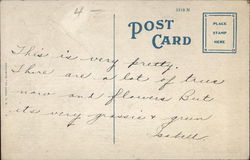 4 -
POST CARD
PLACE
STAMP
HERE
This is very pretty.
There are a lot of trees
now and flowers But
its very grassie & green
Isabell